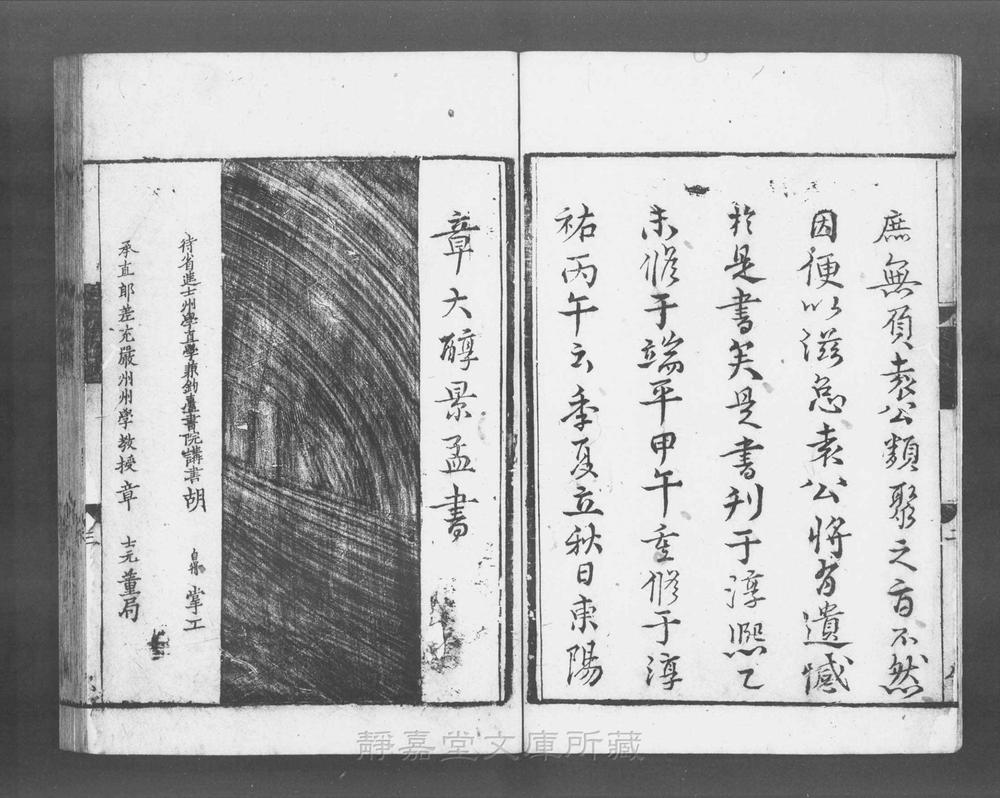 庶無負袁公類聚之旨不然
因便以滋怠袁公將有遺憾
於是書矣是書刋于淳熙乙
未修于端平甲午重修于淳
祐丙午云季夏立秋日東陽
章大醇景孟書
待省進士州學直學兼釣臺書院講書胡 自彝 掌工
承直郎差充嚴州州學教授章 士元 董局
二
三
靜嘉堂文庫所藏